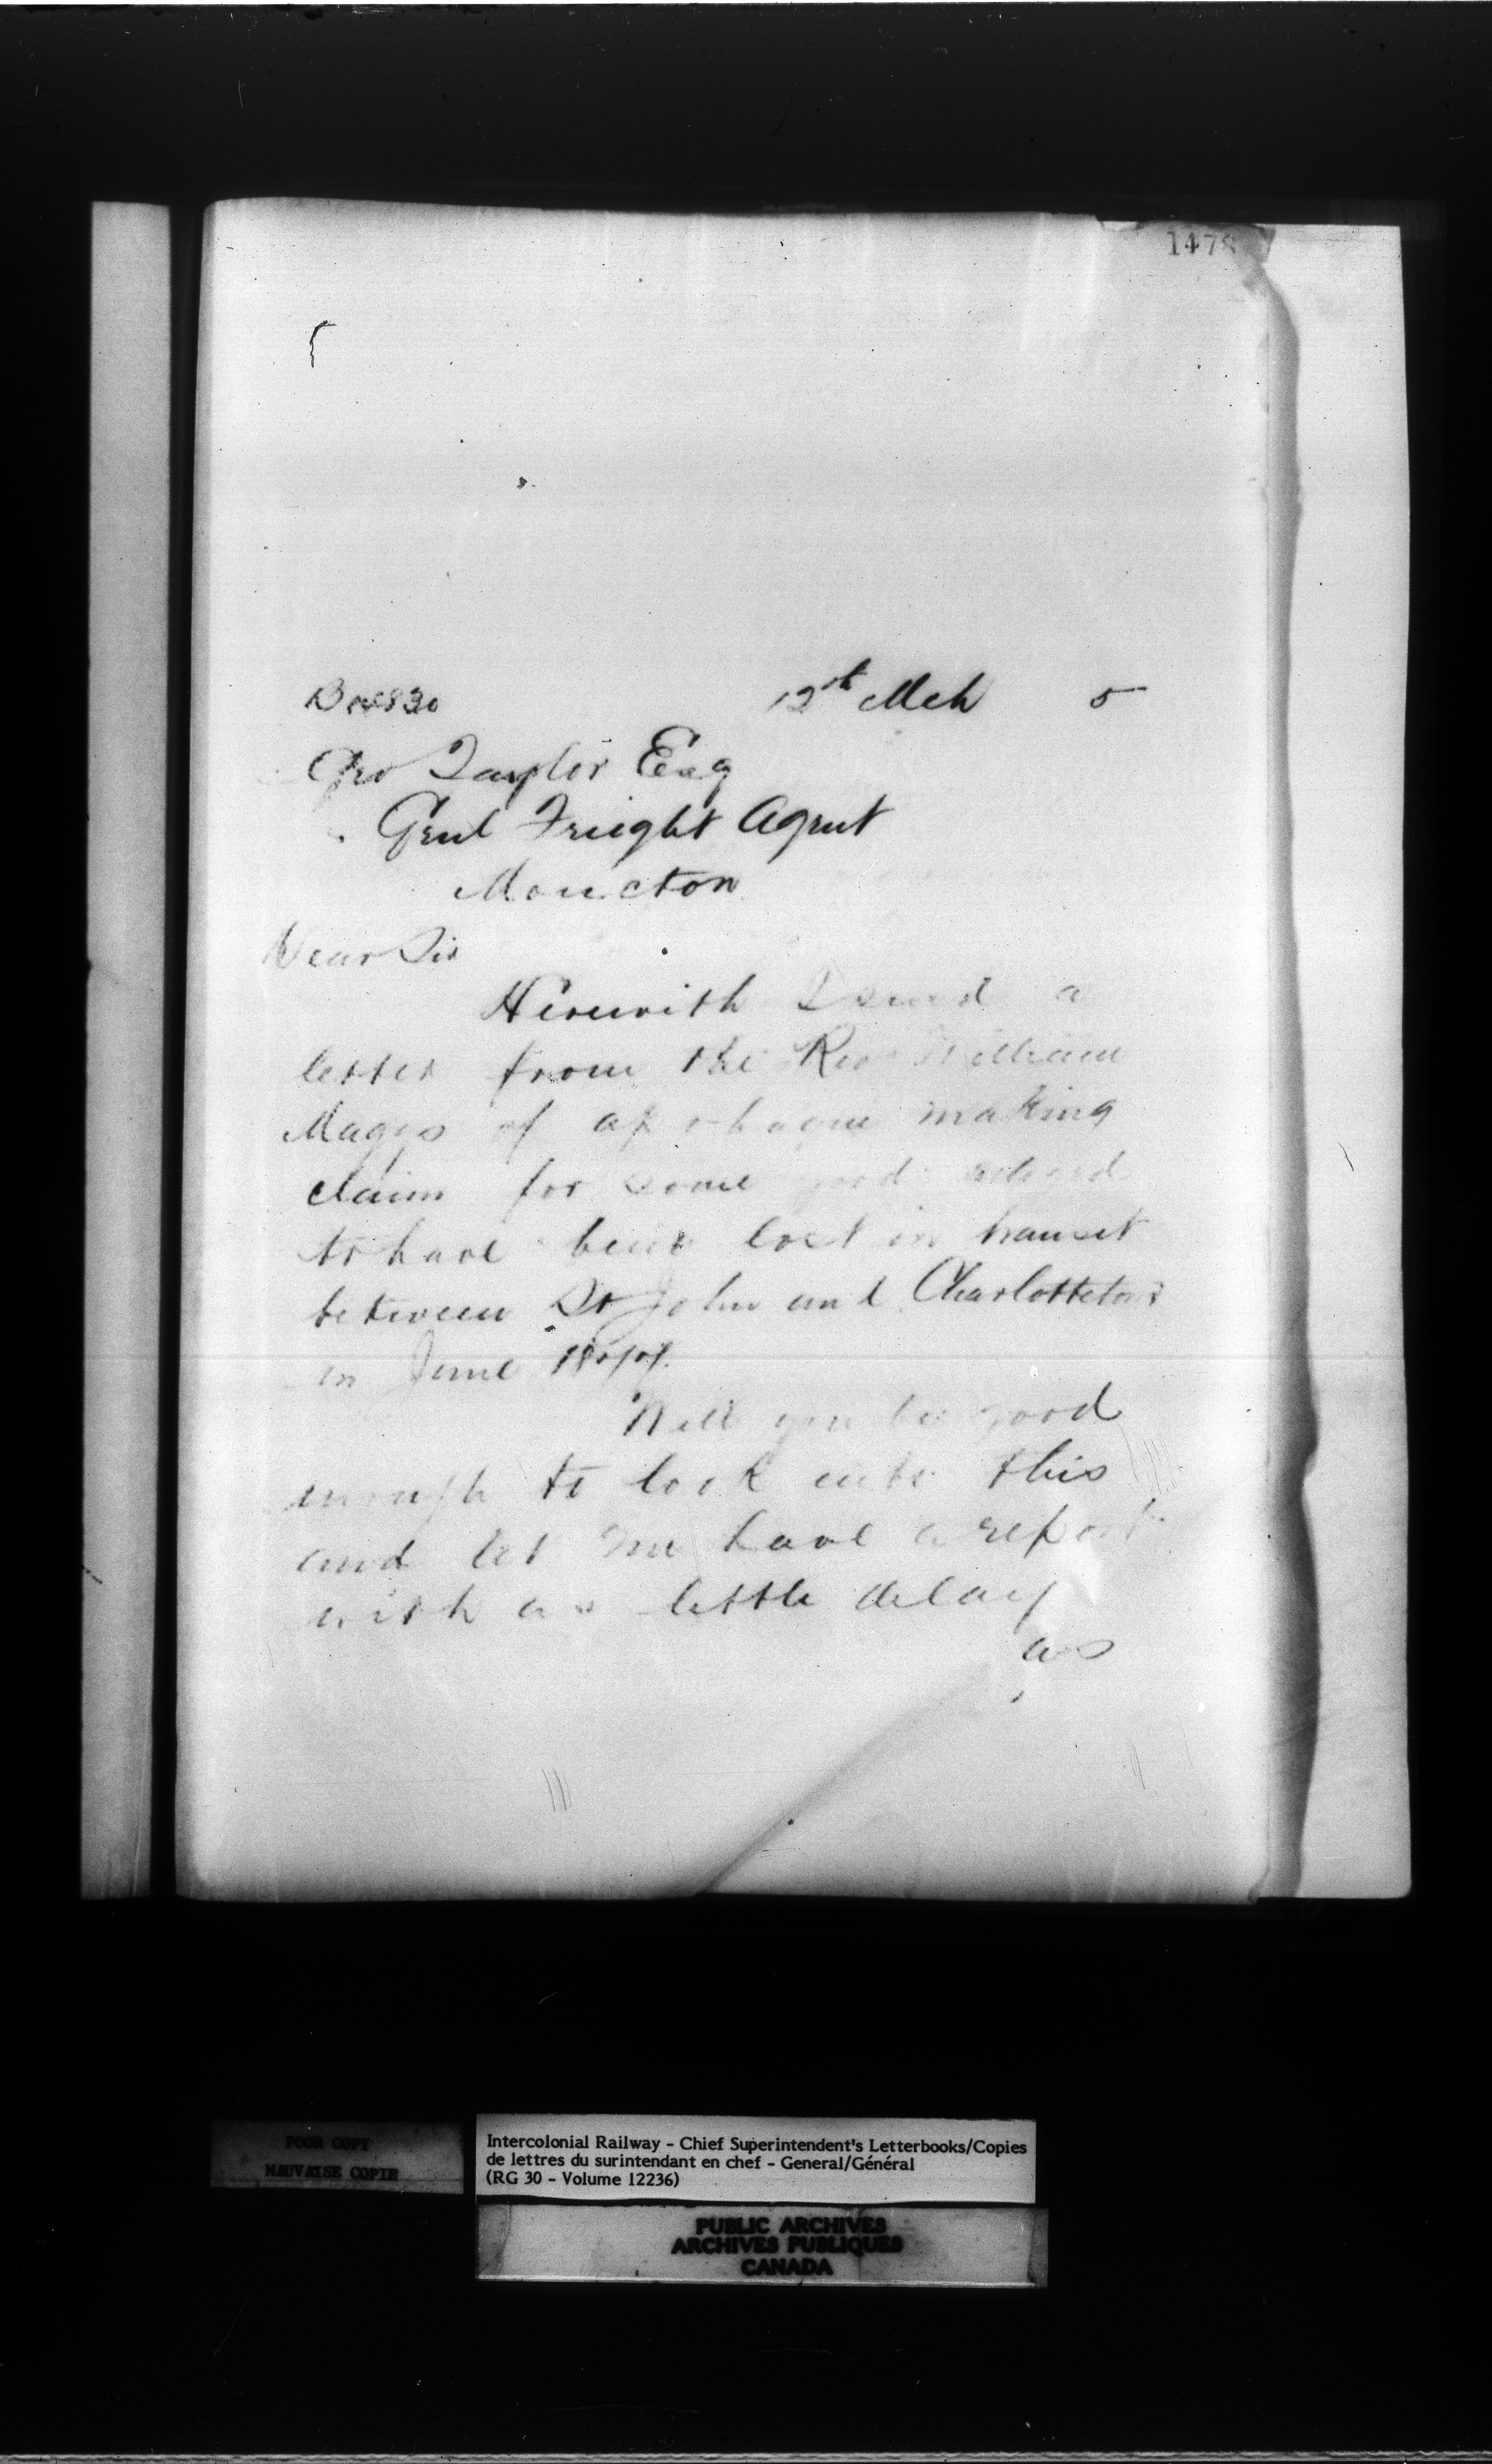 1478
12th Mch 5
Geo Taylor Esq
Genl Freight Agent
Moncton
Dear Sir
Herewith I send a
letter from the Rev William
Maggs of Apohaqui making
claim for some good
to have been lost in transit
between St John and Charlottetown
in June
Will you be good
enough to look into this
and let me have a report
with as little delay
as
POOR COPY
MAUVAISE COPIE
Intercolonial Railway - Chief Superintendent's Letterbooks/Copies
de lettres du surintendant en chef - General/Général
(RG 30 - Volume 12236)
PUBLIC ARCHIVES
ARCHIVES PUBLIQUES
CANADA